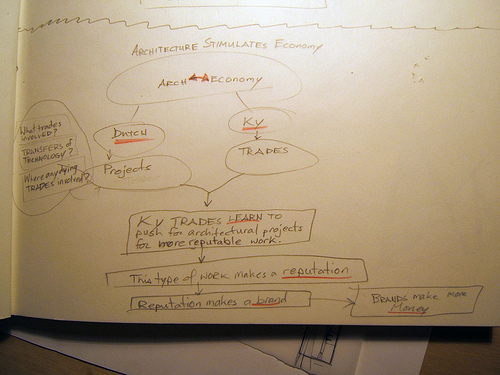 ARCHITECTURE STIMULATES ECONOMY
ARCH ECONOMY
DUTCH
KY
What trades
involved?
TRANSFERS OF
TECHNOLOGY?
Where any dying
TRADES involved?
Projects
TRADES
KY TRADES LEARN TO
push for architectural projects
for more reputable work.
This type of work makes a reputation
Reputation makes a brand
BRANDS make more
Money